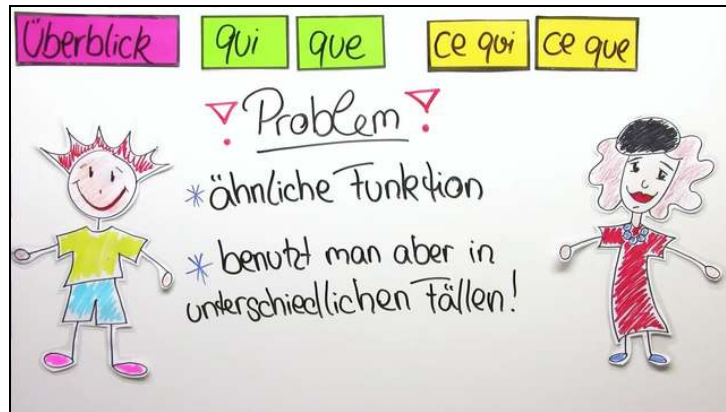 Überblick qui que ce qui ce que
! Problem !
* ähnliche Funktion
* benutzt man aber in
unterschiedlichen Fällen!